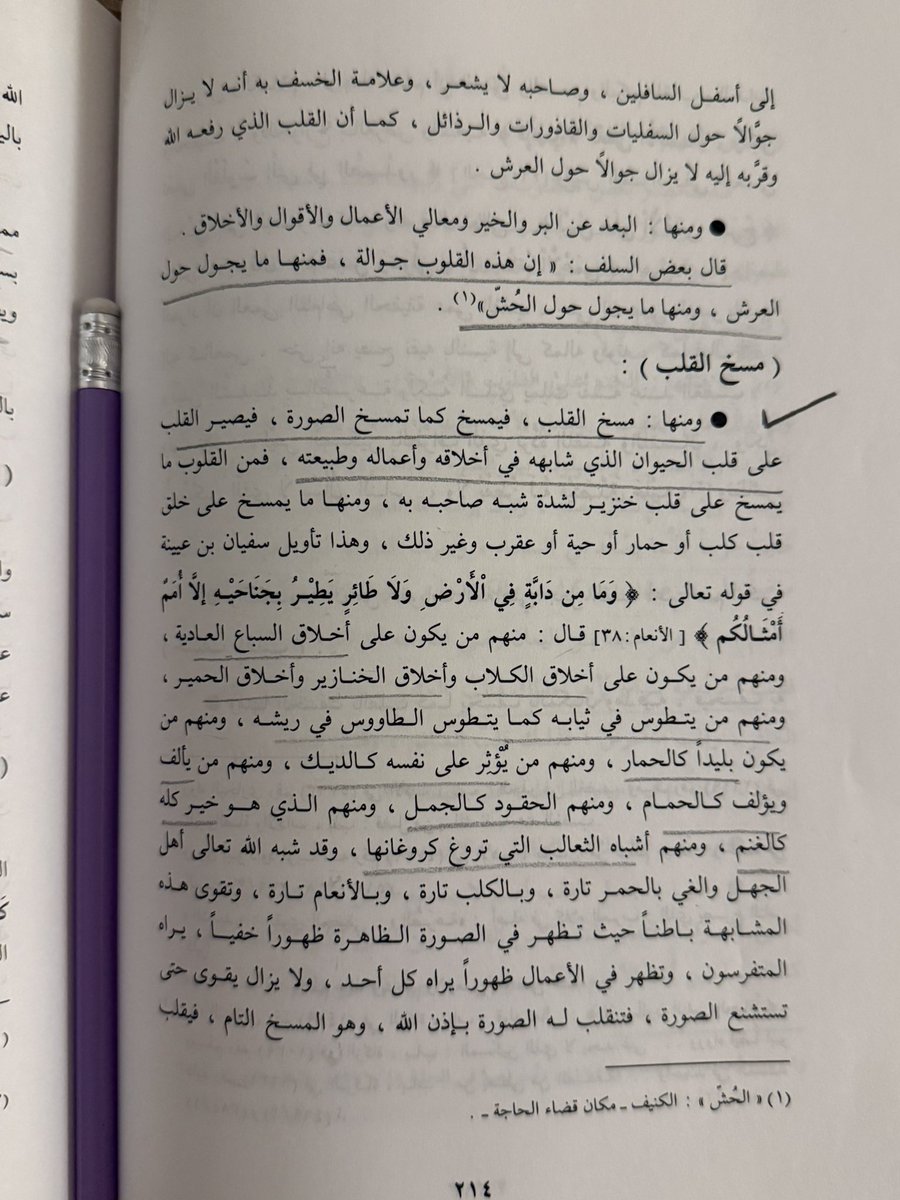 إلى أسفل السافلين ، وصاحبه لا يشعر ، وعلامة الخسف به أنه لا يزال
جوَّالاً حول السفليات والقاذورات والرذائل ، كما أن القلب الذي رفعه الله
وقرَّبه إليه لا يزال جوالاً حول العرش .
● ومنها : البعد عن البر والخير ومعالي الأعمال والأقوال والأخلاق .
قال بعض السلف : « إن هذه القلوب جوالة ، فمنها ما يجول حول
العرش ، ومنها ما يجول حول الحُشّ»(١) .
( مسخ القلب ) :
● ومنها : مسخ القلب ، فيمسخ كما تمسخ الصورة ، فيصير القلب
على قلب الحيوان الذي شابهه في أخلاقه وأعماله وطبيعته ، فمن القلوب ما
يمسخ على قلب خنزير لشدة شبه صاحبه به ، ومنها ما يمسخ على خلق
قلب كلب أو حمار أو حية أو عقرب وغير ذلك ، وهذا تأويل سفيان بن عيينة
في قوله تعالى : ﴿ وَمَا مِن دَابَّةٍ فِي الْأَرْضِ وَلَا طَائِرٍ يَطِيْرُ بِجَنَاحَيْهِ إلَّا أُمَمٌ
أَمْثَالُكُم ﴾ [ الأنعام:٣٨] قال : منهم من يكون على أخلاق السباع العادية ،
ومنهم من يكون على أخلاق الكلاب وأخلاق الخنازير وأخلاق الحمير ،
ومنهم من يتطوس في ثيابه كما يتطوس الطاووس في ريشه ، ومنهم من
يكون بليداً كالحمار ، ومنهم من يُؤْثِر على نفسه كالديك ، ومنهم من يألف
ويؤلف كالحمام ، ومنهم الحقود كالجمل ، ومنهم الذي هو خير كله
كالغنم ، ومنهم أشباه الثعالب التي تروغ كروغانها ، وقد شبه الله تعالى أهل
الجهل والغي بالحمر تارة ، وبالكلب تارة ، وبالأنعام تارة ، وتقوى هذه
المشابهة باطناً حيث تظهر في الصورة الظاهرة ظهوراً خفياً ، يراه
المتفرسون ، وتظهر في الأعمال ظهوراً يراه كل أحد ، ولا يزال يقوى حتى
تستشنع الصورة ، فتنقلب له الصورة بإذن الله ، وهو المسخ التام ، فيقلب
(١) « الحُشّ » : الكنيف ـ مكان قضاء الحاجة ـ .
٢١٤